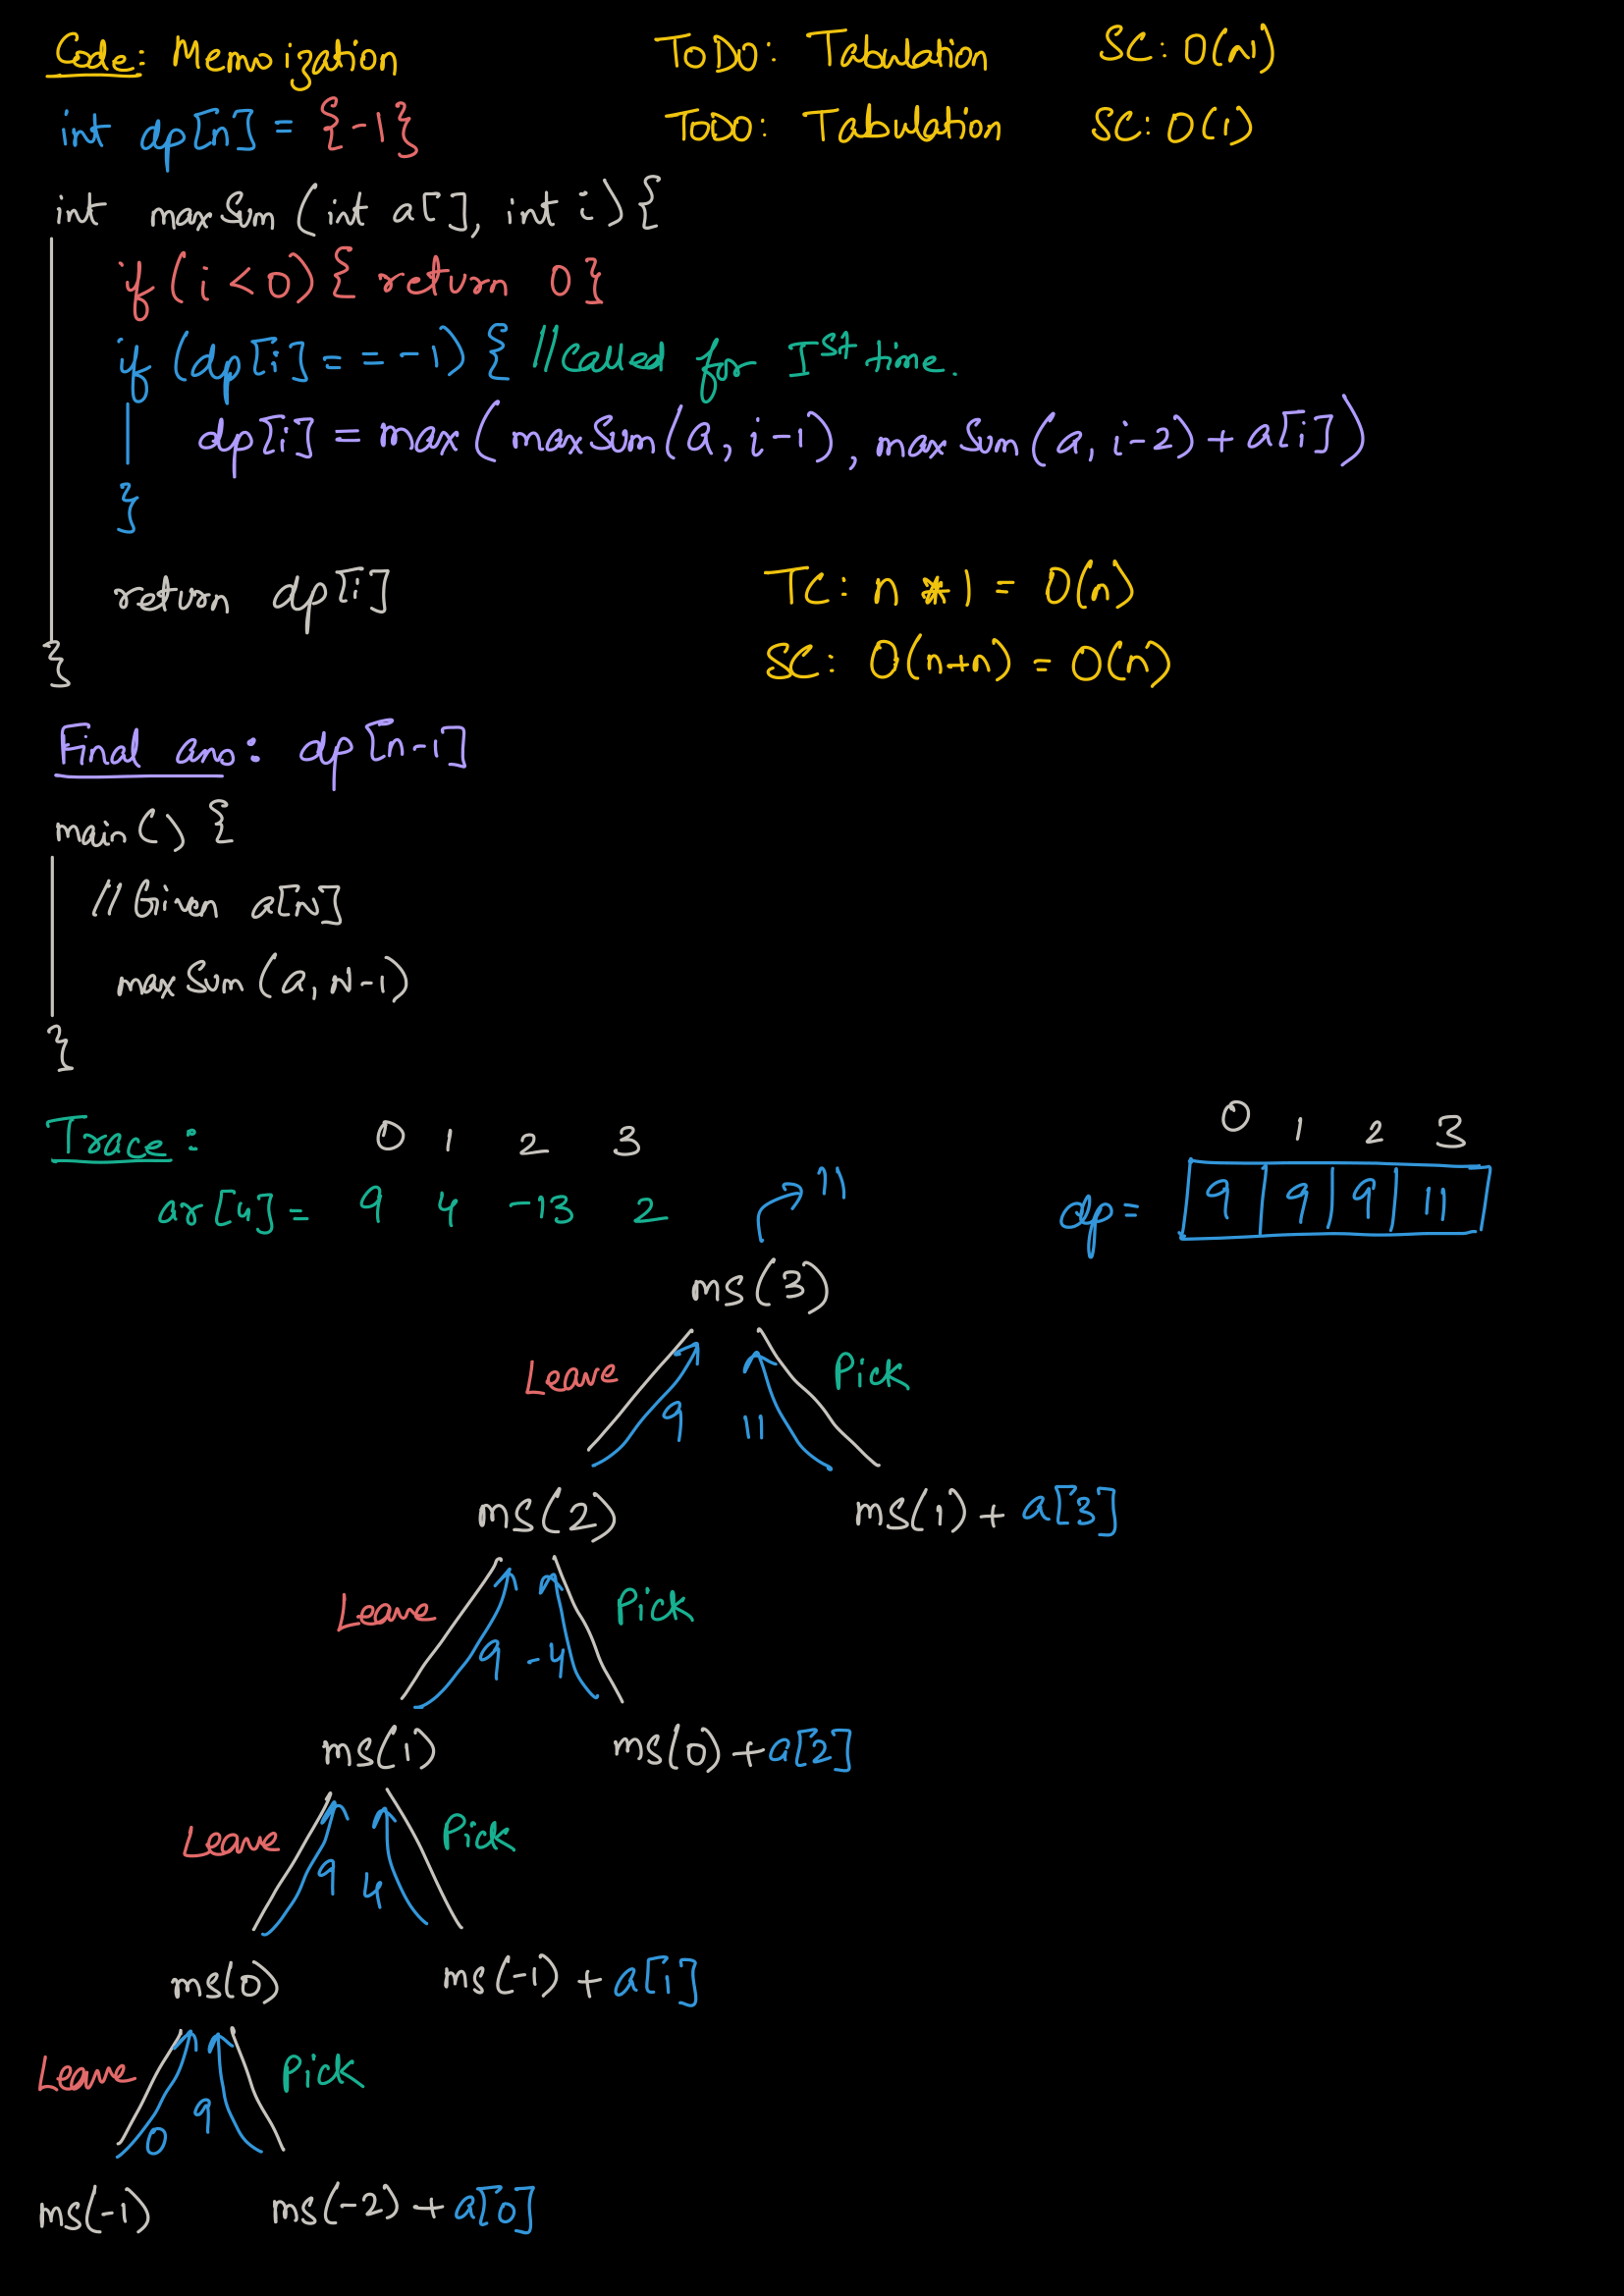 Code: Memoization
ToDO: Tabulation SC: O(N)
int dp[n] = {-1}
ToDO: Tabulation SC: O(1)
int maxSum(int a[], int i){
if(i<0){ return 0}
if(dp[i]==-1){ //Called for Ist time.
dp[i] = max(maxSum(a, i-1), maxSum(a, i-2) + a[i])
}
return dp[i]
TC: n * 1 = O(n)
SC: O(n+n) = O(n)
}
Final ans: dp[n-1]
main() {
//Given a[N]
maxSum(a, N-1)
}
Trace: 0 1 2 3
ar[4] = 9 4 -13 2
0 1 2 3
dp = 9 9 9 11
11
ms(3)
Leave 9 11 Pick
ms(2) ms(1) + a[3]
Leave 9 -4 Pick
ms(1) ms(0) + a[2]
Leave 9 4 Pick
ms(0) ms(-1) + a[i]
Leave 0 9 Pick
ms(-1) ms(-2) + a[0]